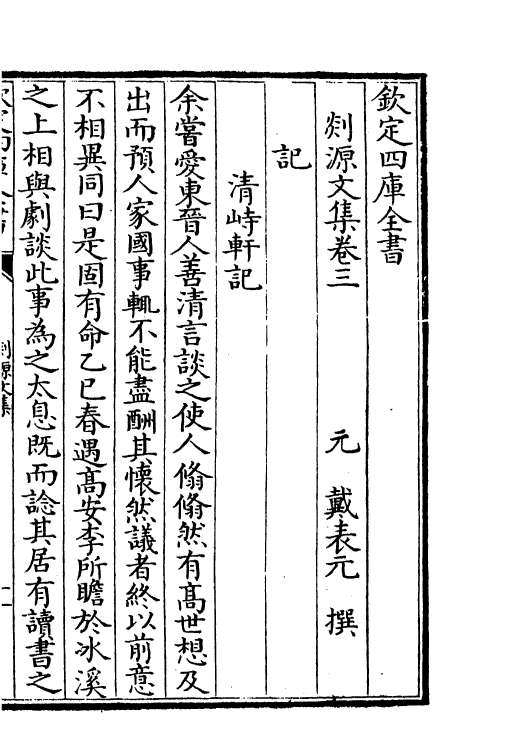 欽定四庫全書
剡源文集卷三
元 戴表元 撰
記
清峙軒記
余嘗愛東晉人善清言談之使人翛翛然有髙世想及
出而預人家國事輒不能盡酬其懐然議者終以前意
不相異同曰是固有命乙巳春遇髙安李所瞻於冰溪
之上相與劇談此事為之太息既而諗其居有讀書之
剡源文集